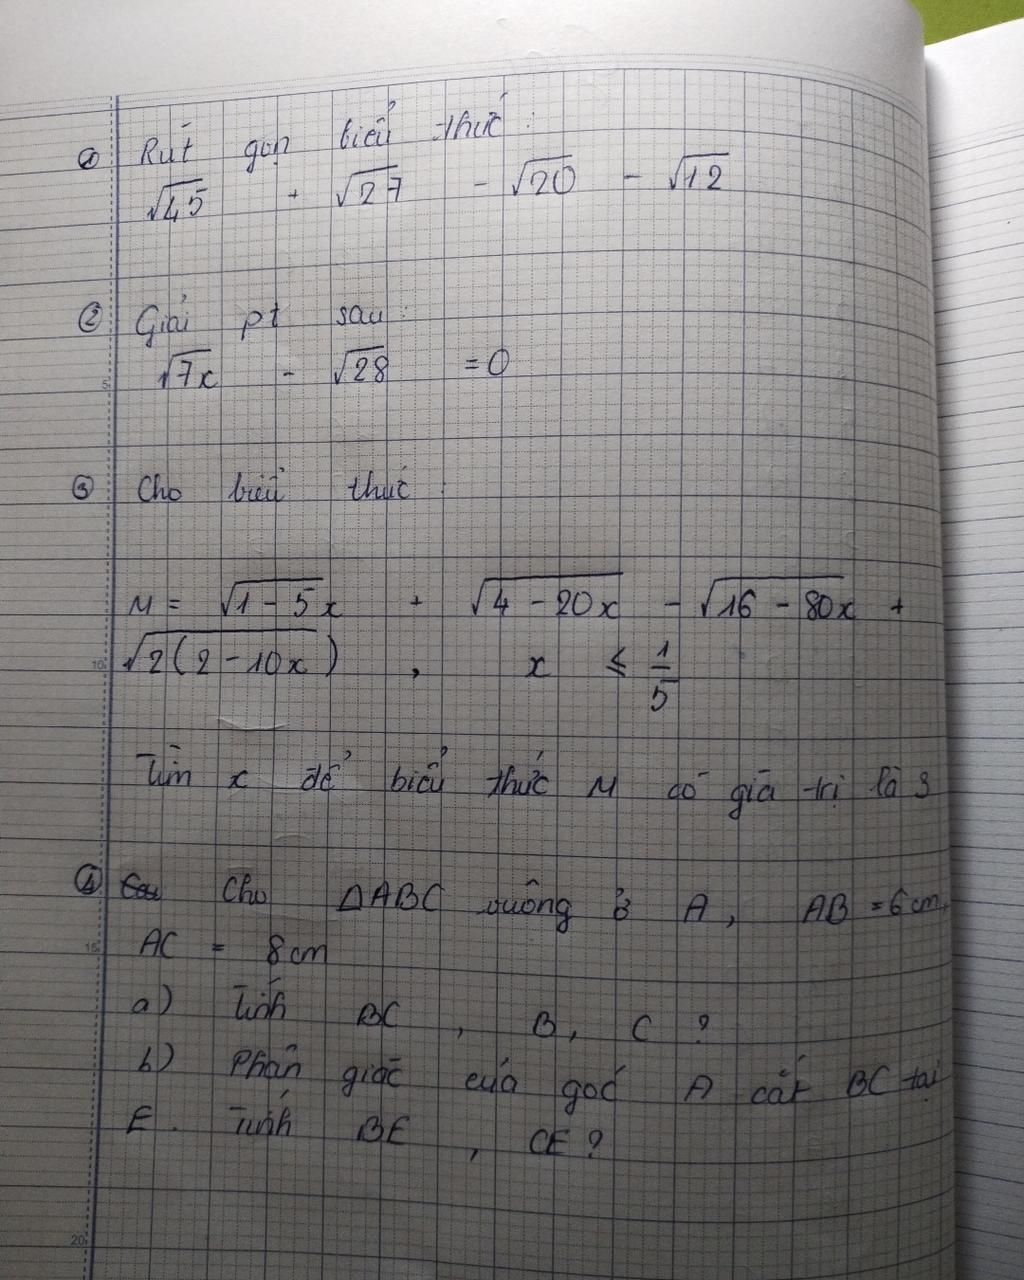 ① Rút gọn biểu thức :
√45 + √27 - √20 - √12
② Giải pt sau :
√7x - √28 = 0
5
③ Cho biểu thức :
M = √1 - 5x + √4 - 20x - √16 - 80x +
√2(2 - 10x) , x ≤ 1/5
10
Tìm x để biểu thức M có giá trị là 3
④ Cho ΔABC vuông ở A, AB = 6 cm,
AC = 8 cm
15
a) Tính BC , B, C ?
b) Phân giác của góc A cắt BC tại
E. Tính BE , CE ?
20